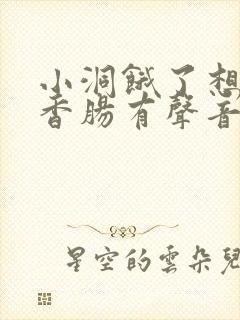 小洞餓了想
香腸有聲音
星空的雲朵兒